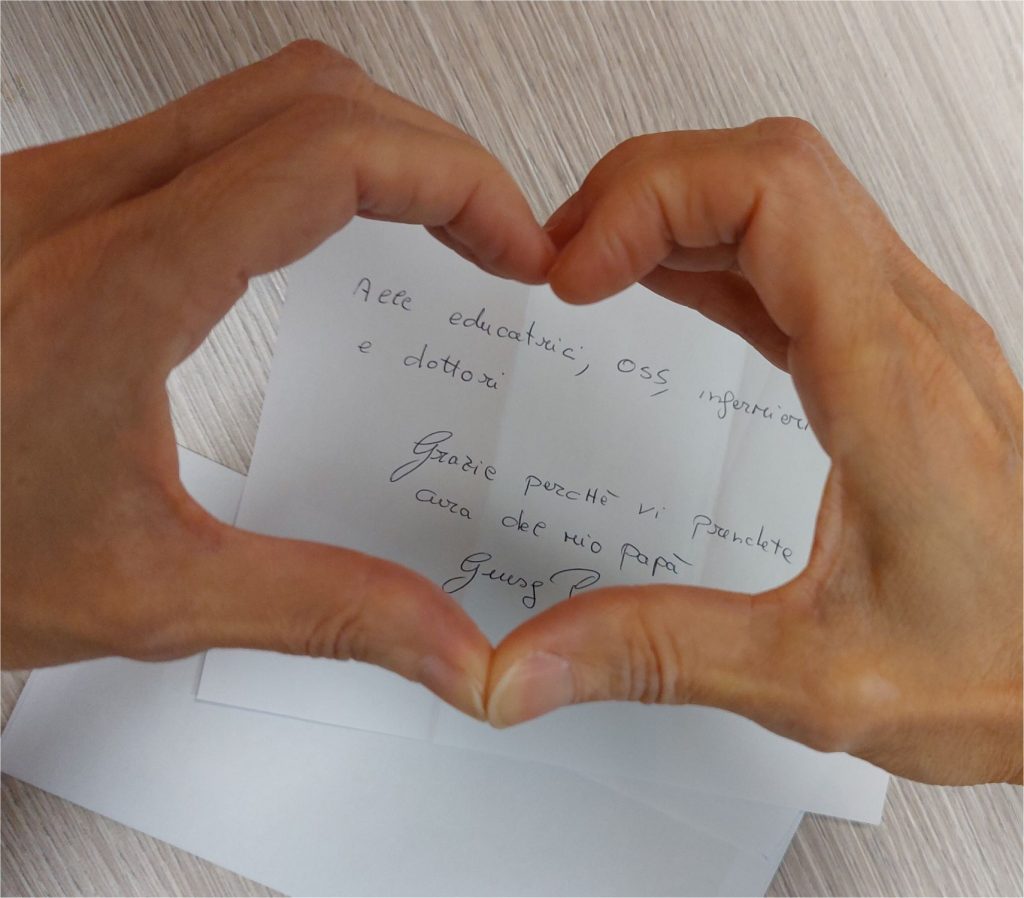 Alle educatrici, oss, infermieri
e dottori
Grazie perchè vi prendete
cura del mio papà